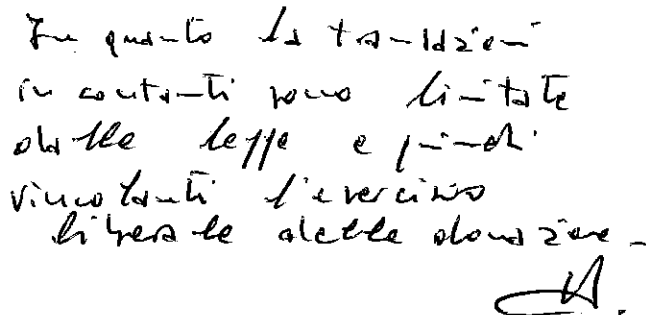 In quanto la transazioni
in contanti sono limitate
dalle legge e quindi
vincolanti l'esercizio
liberale della donazione